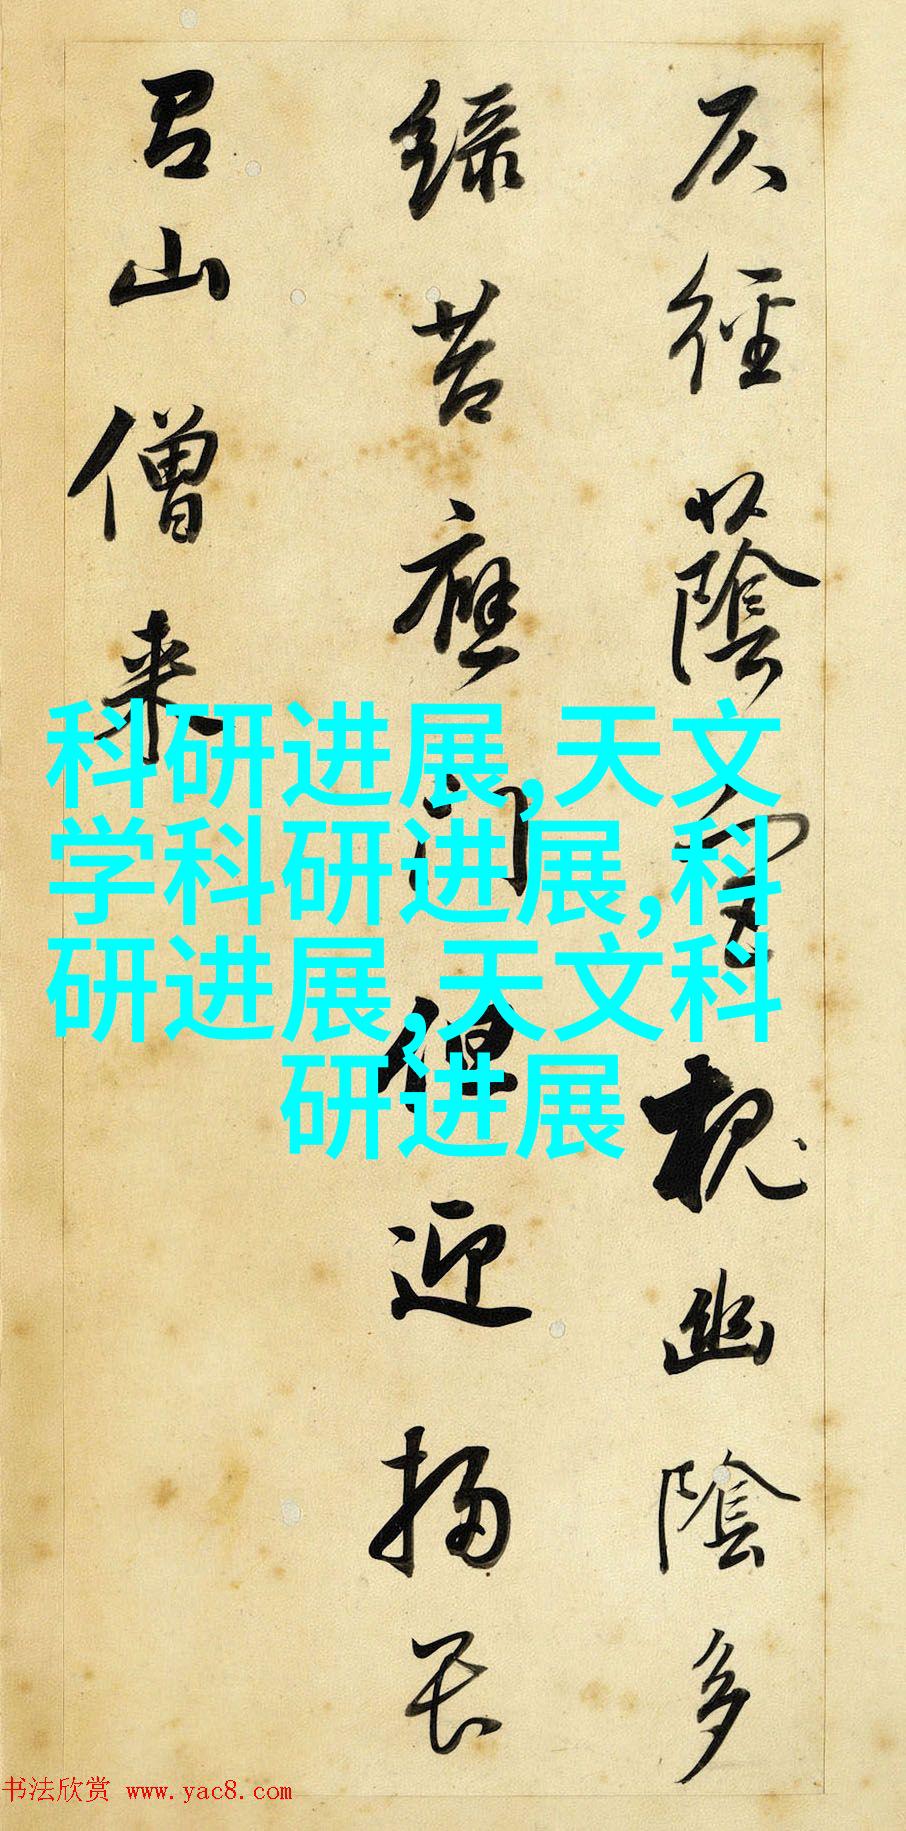 仄徑蔭宮槐幽陰多
綠苔應門但迎掃畏
有山僧来
科研进展,天文
学科研进展,科
研进展,天文科
研进展
书法欣赏 www.yac8.com